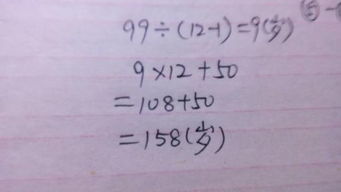 99÷(12-1)=9(岁) ⑤-
9×12+50
=108+50
=158(岁)